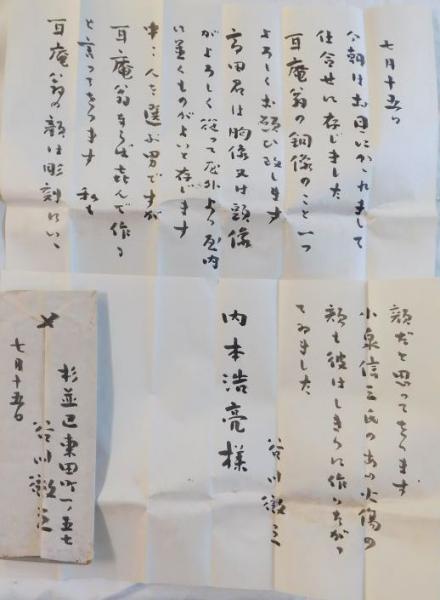 七月十五日
今朝はお目にかゝれまして
仕合せに存じました
耳庵翁の銅像のこと一つ
よろしくお願ひ致します
高田君は胸像又は頭像
がよろしく従って屋外より屋内
に置くものがよいと存じます
中々人を選ぶ男ですが
耳庵翁ならば喜んで作る
と言ってをります 私も
耳庵翁の顔は彫刻にいゝ
顔だと思ってをります
小泉信三氏のあの火傷の
顔も彼はしきりに作りたがつ
てゐました
谷川徹三
内本浩亮様
杉並区東田町一ノ五七
谷川徹三
七月十五日